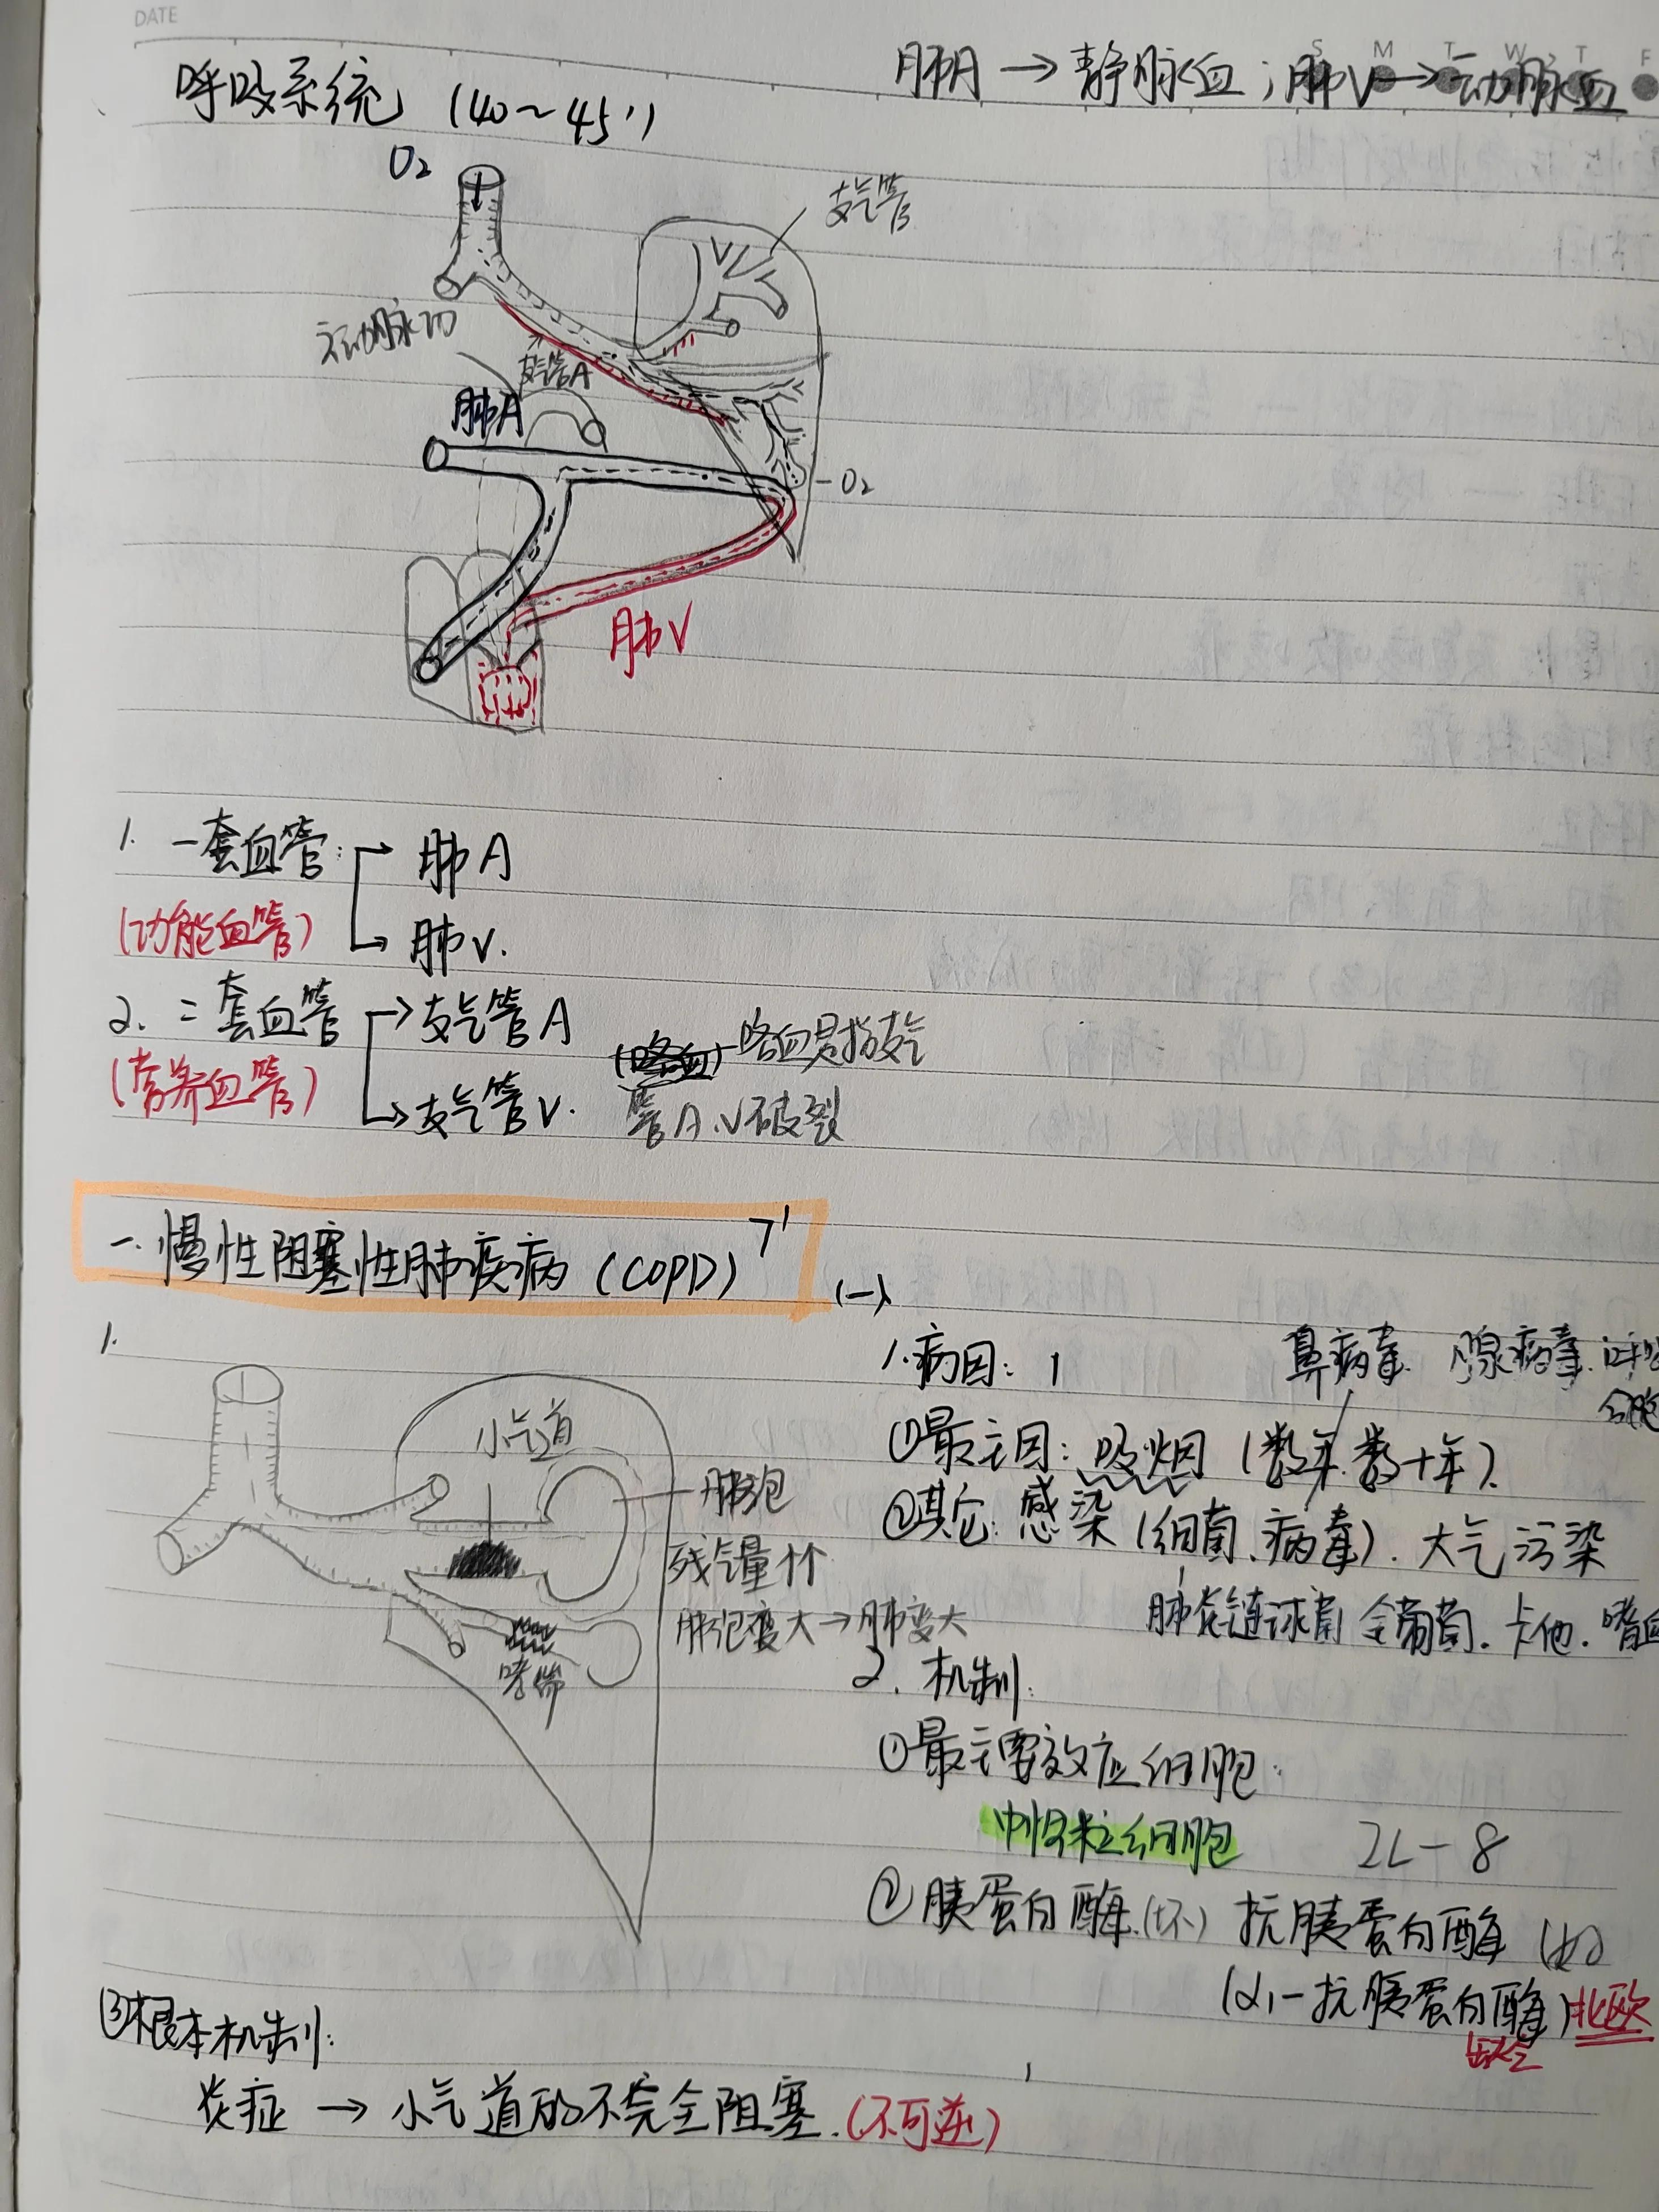 DATE
S M T W T F
呼吸系统 (40～45')
肺A → 静脉血；肺V → 动脉血
O₂
支气管
主动脉弓
支气管A
肺A
O₂
肺V
1. 一套血管：→ 肺A
(功能血管) → 肺V.
2. 二套血管 → 支气管A
(营养血管) → 支气管V.
(咯血) 咯血是指支气
管A.V破裂
一. 慢性阻塞性肺疾病 (COPD) 7'
(一)
1.
小气道
肺泡
残气量↑↑
肺泡变大→肺变大
哮喘
1.病因：1
鼻病毒. 腺病毒. 呼吸
合胞
①最主因：吸烟 (数年.数十年).
②其它：感染 (细菌、病毒). 大气污染
肺炎链球菌 金葡菌. 卡他. 嗜血
2. 机制：
①最主要效应细胞：
中性粒细胞 IL-8
②胰蛋白酶.(坏) 抗胰蛋白酶 (好)
(α₁-抗胰蛋白酶) 北欧
缺乏
③根本机制：
炎症 → 小气道的不完全阻塞.(不可逆)